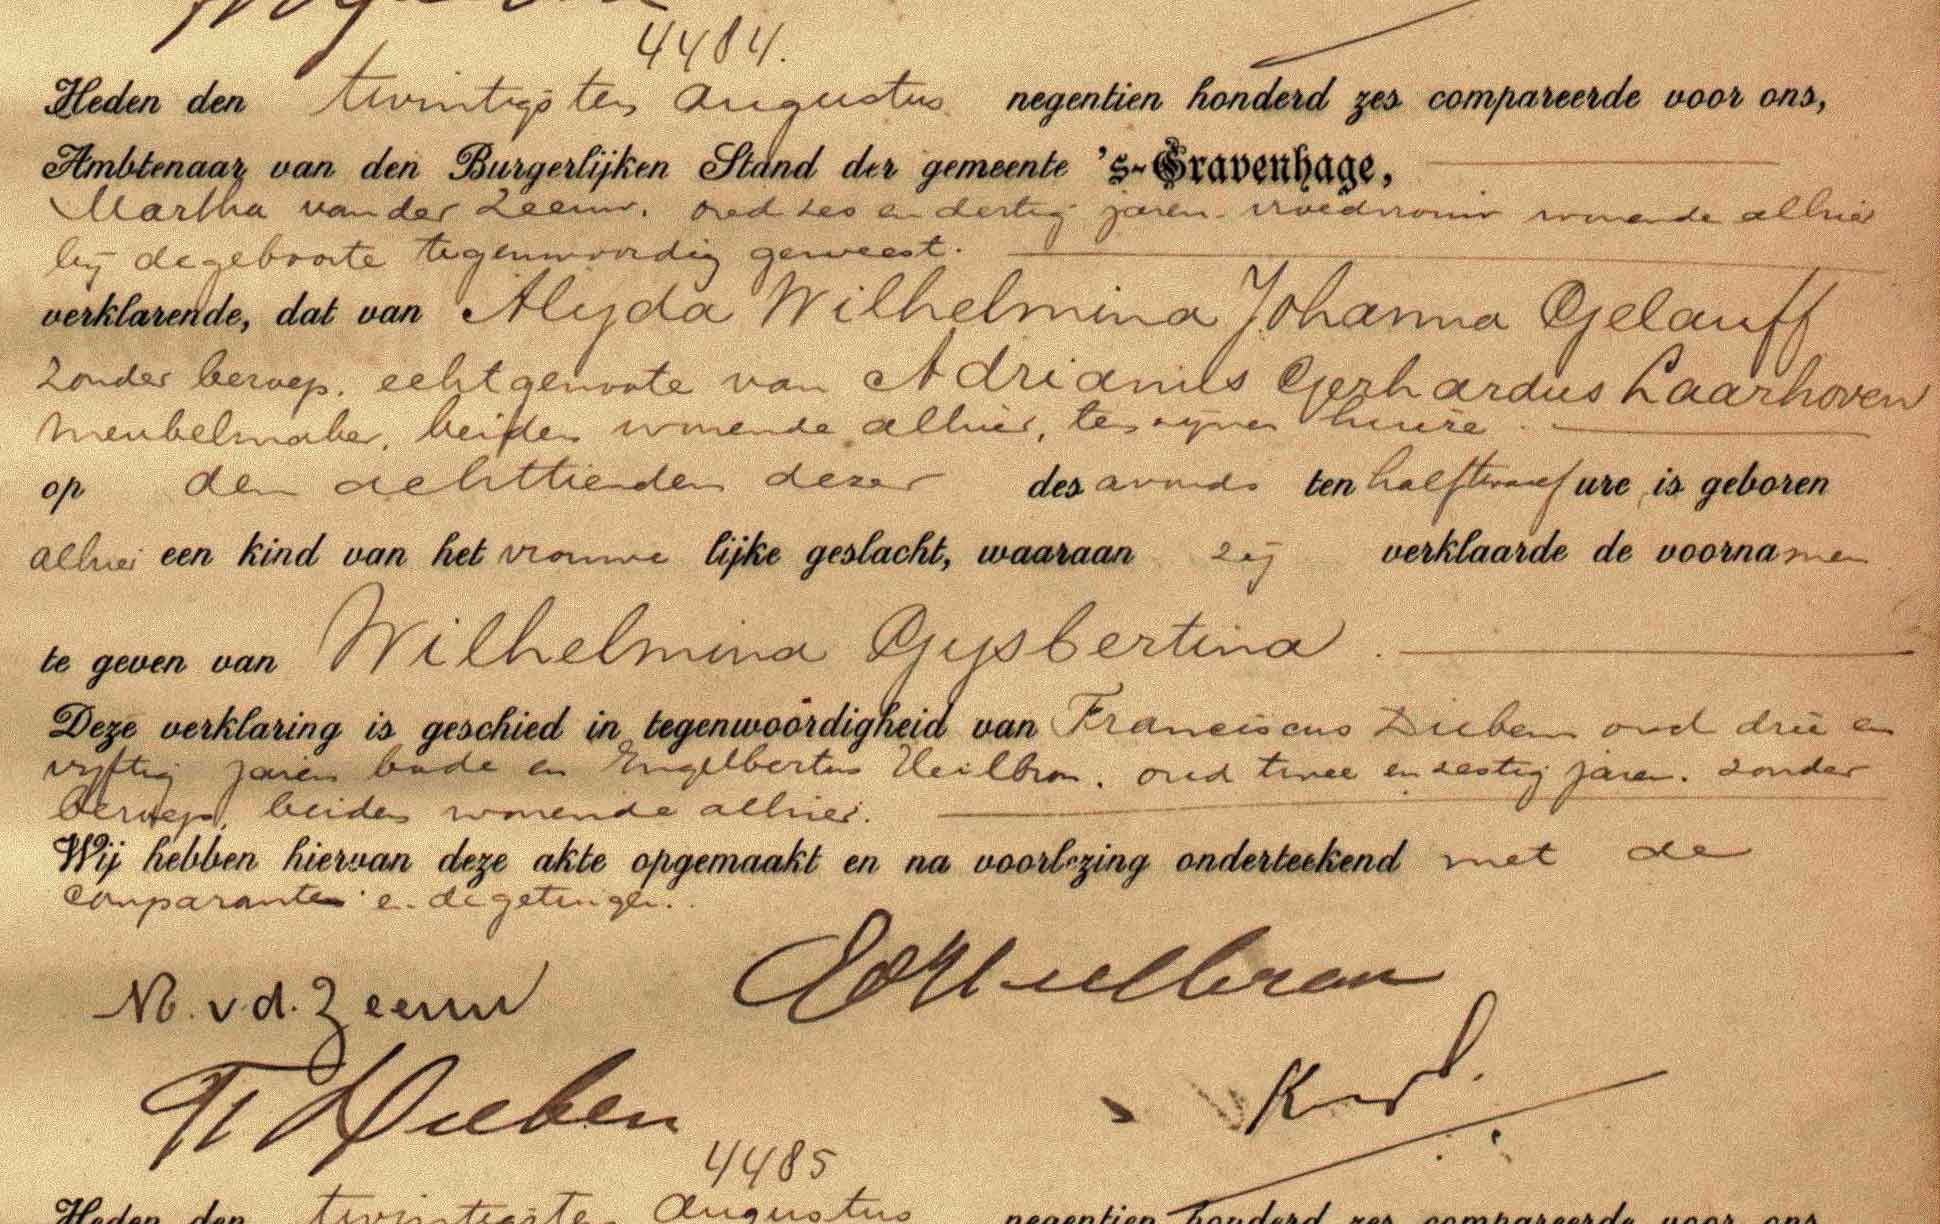 4484.
Heden den twintigsten Augustus negentien honderd zes compareerde voor ons,
Ambtenaar van den Burgerlijken Stand der gemeente 's-Gravenhage,
Martha van der Zeeuw, oud zes en dertig jaren vroedvrouw wonende alhier
bij de geboorte tegenwoordig geweest.
verklarende, dat van Alyda Wilhelmina Johanna Gelauff
zonder beroep, echtgenoote van Adrianus Gerhardus Laarhoven
meubelmaker, beiden wonende alhier, ten zijnen huize.
op den achttienden dezer des avonds ten half twaalf ure, is geboren
alhier een kind van het vrouwelijke geslacht, waaraan zij verklaarde de voornamen
te geven van Wilhelmina Gysbertina.
Deze verklaring is geschied in tegenwoordigheid van Franciscus Dieben oud drie en
vijftig jaren bode en Engelbertus Heilbron, oud twee en zestig jaren, zonder
beroep, beiden wonende alhier.
Wij hebben hiervan deze akte opgemaakt en na voorlezing onderteekend met de
comparante en de getuigen.
M. v. d. Zeeuw
Heilbron
F Dieben
4485
Heden den twintigsten Augustus negentien honderd zes compareerde voor ons,